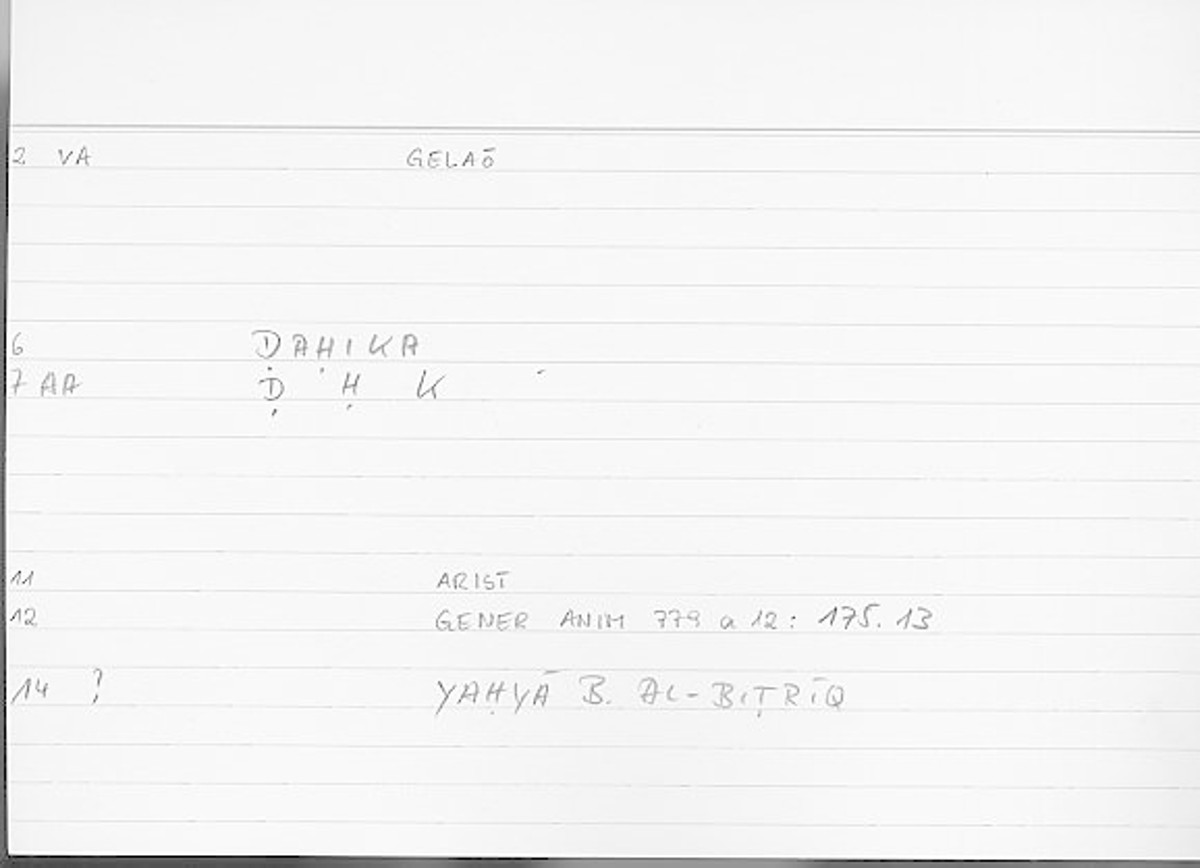 2 VA GELAŌ
6 ḌAḤIKA
7 AA Ḍ Ḥ K
11 ARIST
12 GENER ANIM 779 a 12: 175.13
14 ? YAḤYĀ B. AL-BIṬRĪQ